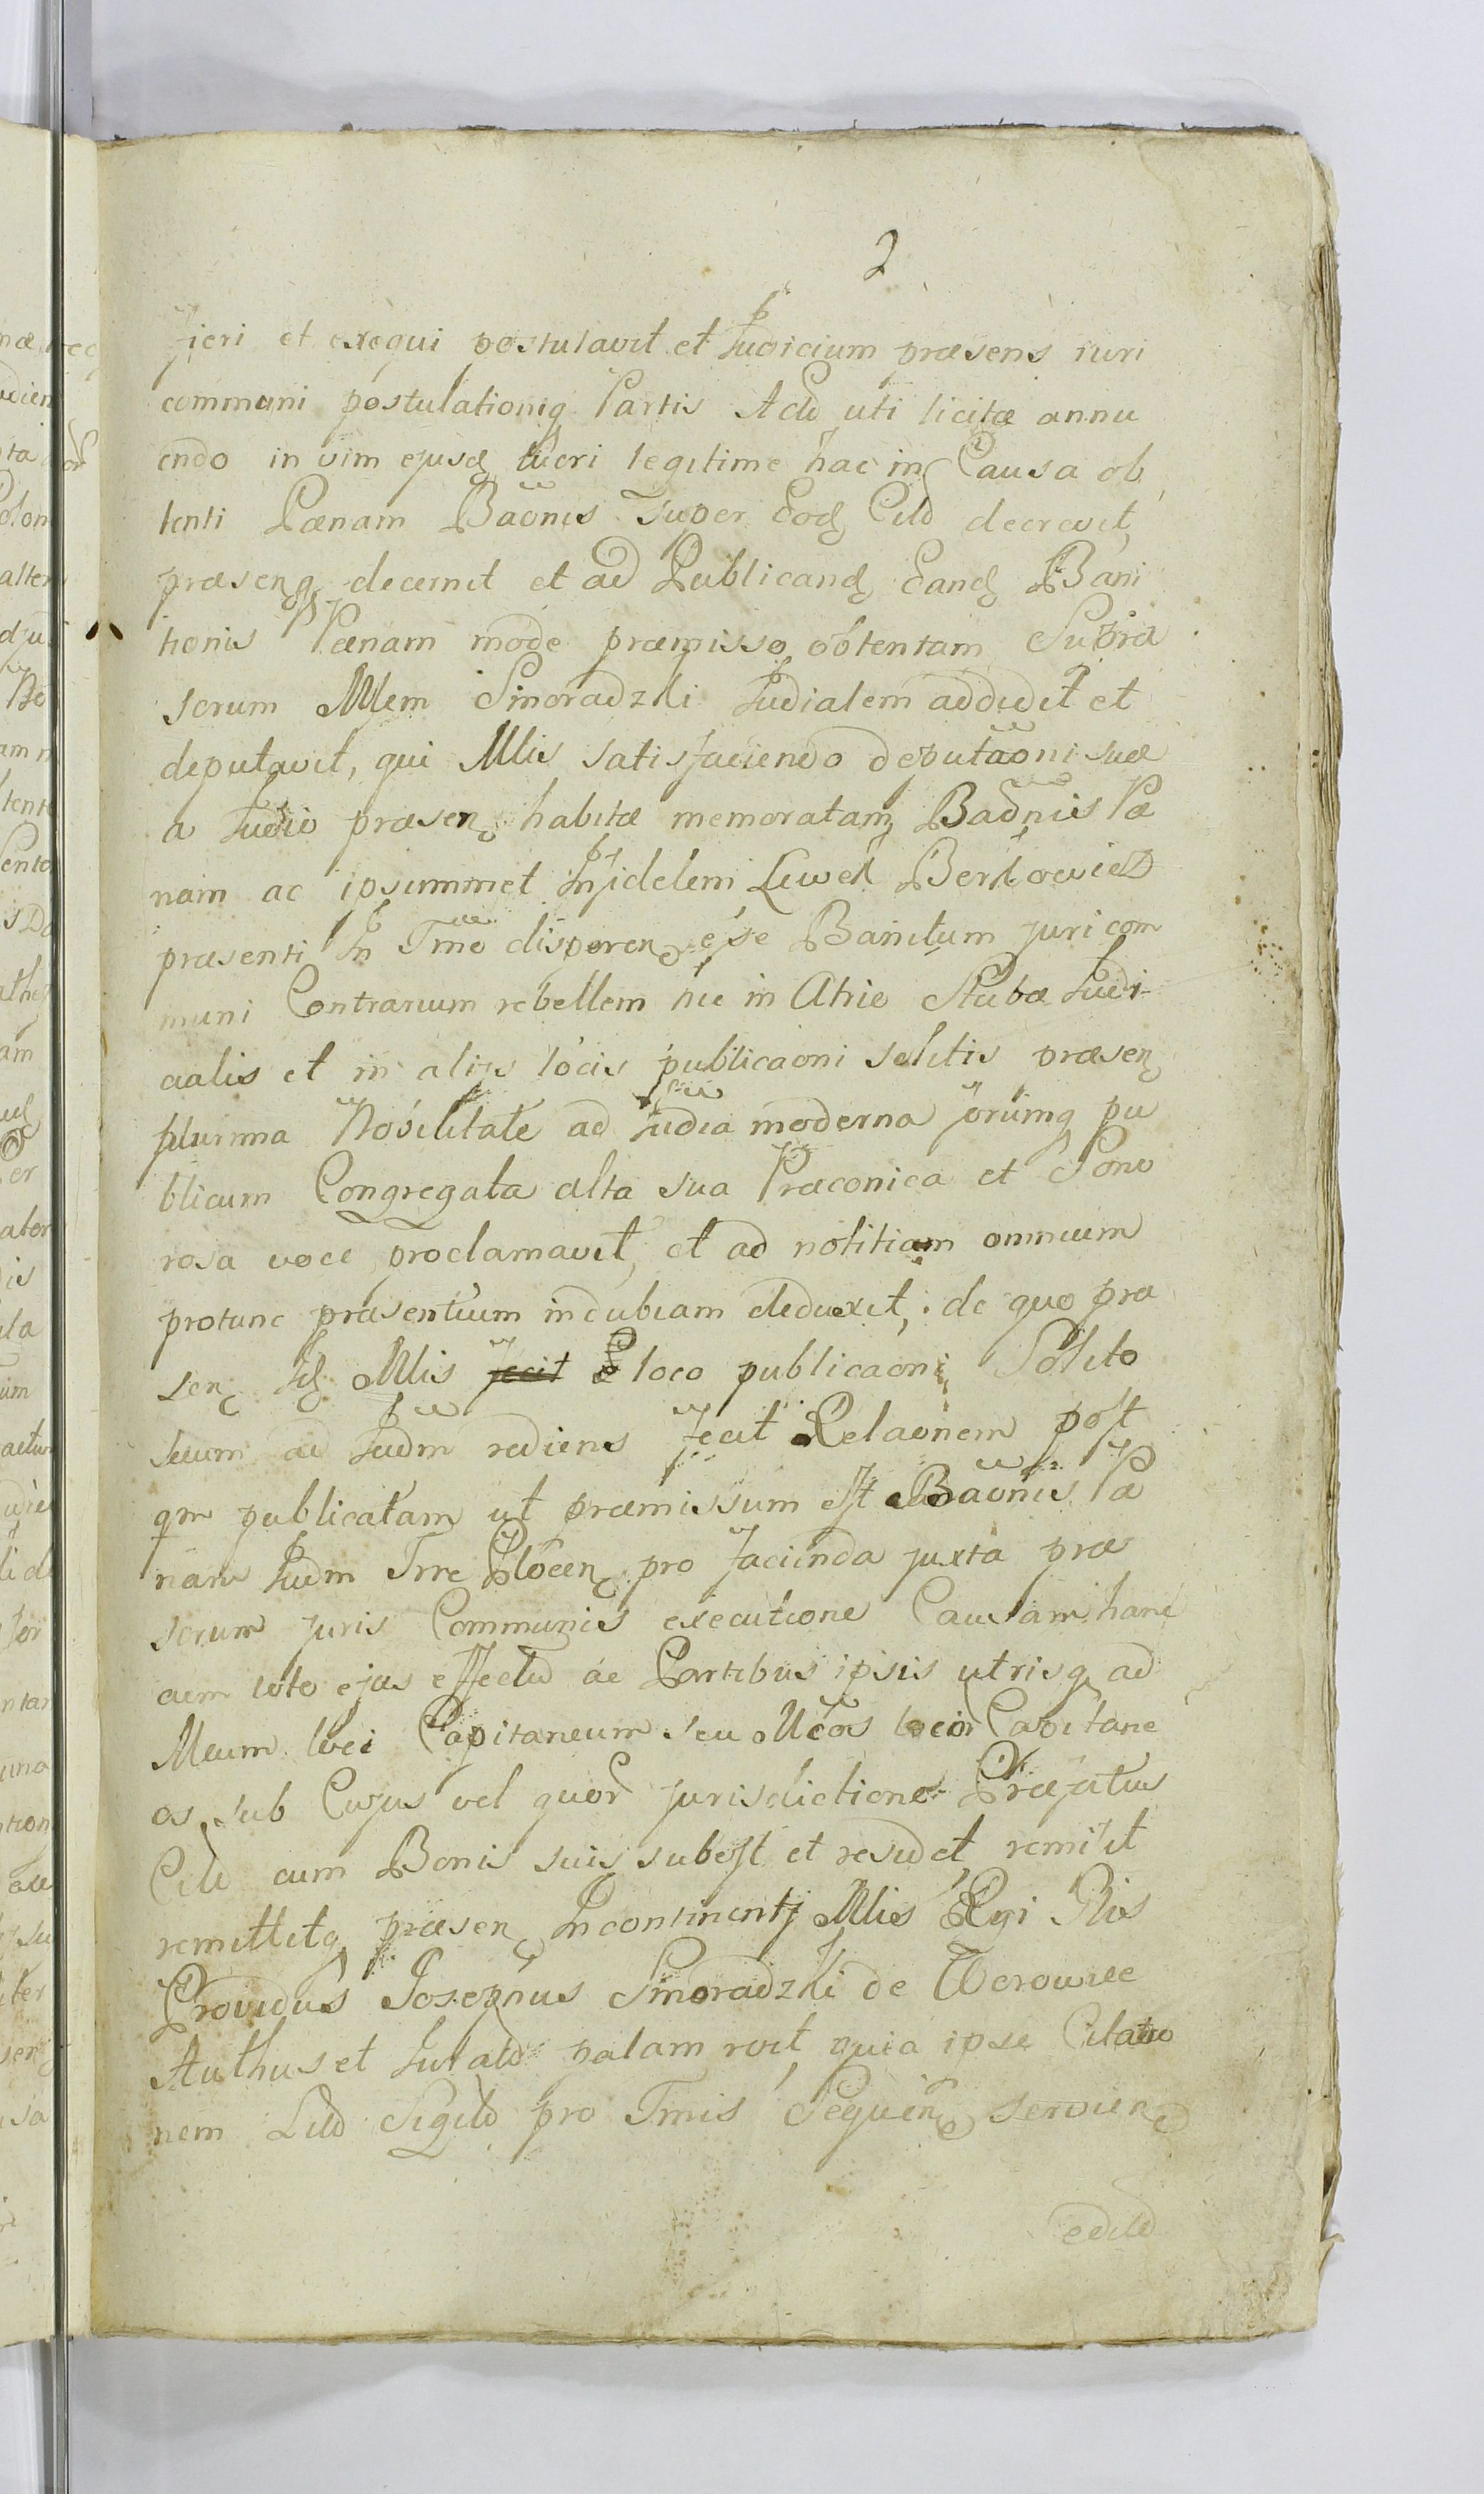 2
fieri et exequi postulavit et Judicium præsens iuri
communi postulationiq Partis Acto uti licitæ annu
endo in vim ejusd lucri legitime hac in Causa ob
tenti Pœnam Baōnis super Eod Cito decrevit,
præsenq decernit et ad Publicand Eand Bani
tionis Pœnam modo præmisso obtentam Supra
scrum Mlem Smoradzki Judialem addidit et
deputavit, qui Mlis satisfaciendo deputaōni suæ
a Judio præsen habitæ memoratam Baōnis Pœ
nam ac ipsummet Infidelem Lewek Berkowicz
præsenti In Tmo disparen esse Banitum juri com
muni Contrarium rebellem hic in Atrio Stubæ Judi-
cialis et in alijs locis publicaoni solitis præsen
plurima Nobilitate ad Judia moderna forumq pu
blicum Congregata alta sua Præconica et Sono
rosa voce proclamavit, et ad notitiam omnium
protunc præsentium indubiam deduxit, de quo præ
sen Id Mlis fecit E loco publicaoni Solito
suum ad Judm rediens fecit Relaonem post
qm publicatam ut præmissum est Baōnis Pœ
nam Judm Trre Plocen pro facienda juxta præ
scrum juris Communis executione Causam hanc
cum toto ejus effectu ac Partibus ipsis utrisq ad
Mcum loci Capitaneum seu Mcos locor Capitane
os, sub Cujus vel quor jurisdictione Præfatus
Citd cum Bonis suis subest et residet remisit
remittitq præsen Incontinenti Mlis Regi Plis
Providus Josephus Smoradzki de Worowice
Authus et Jurald palam rvit quia ipse Citatio
nem Litd Sigild pro Tmis Sequen servien
edild